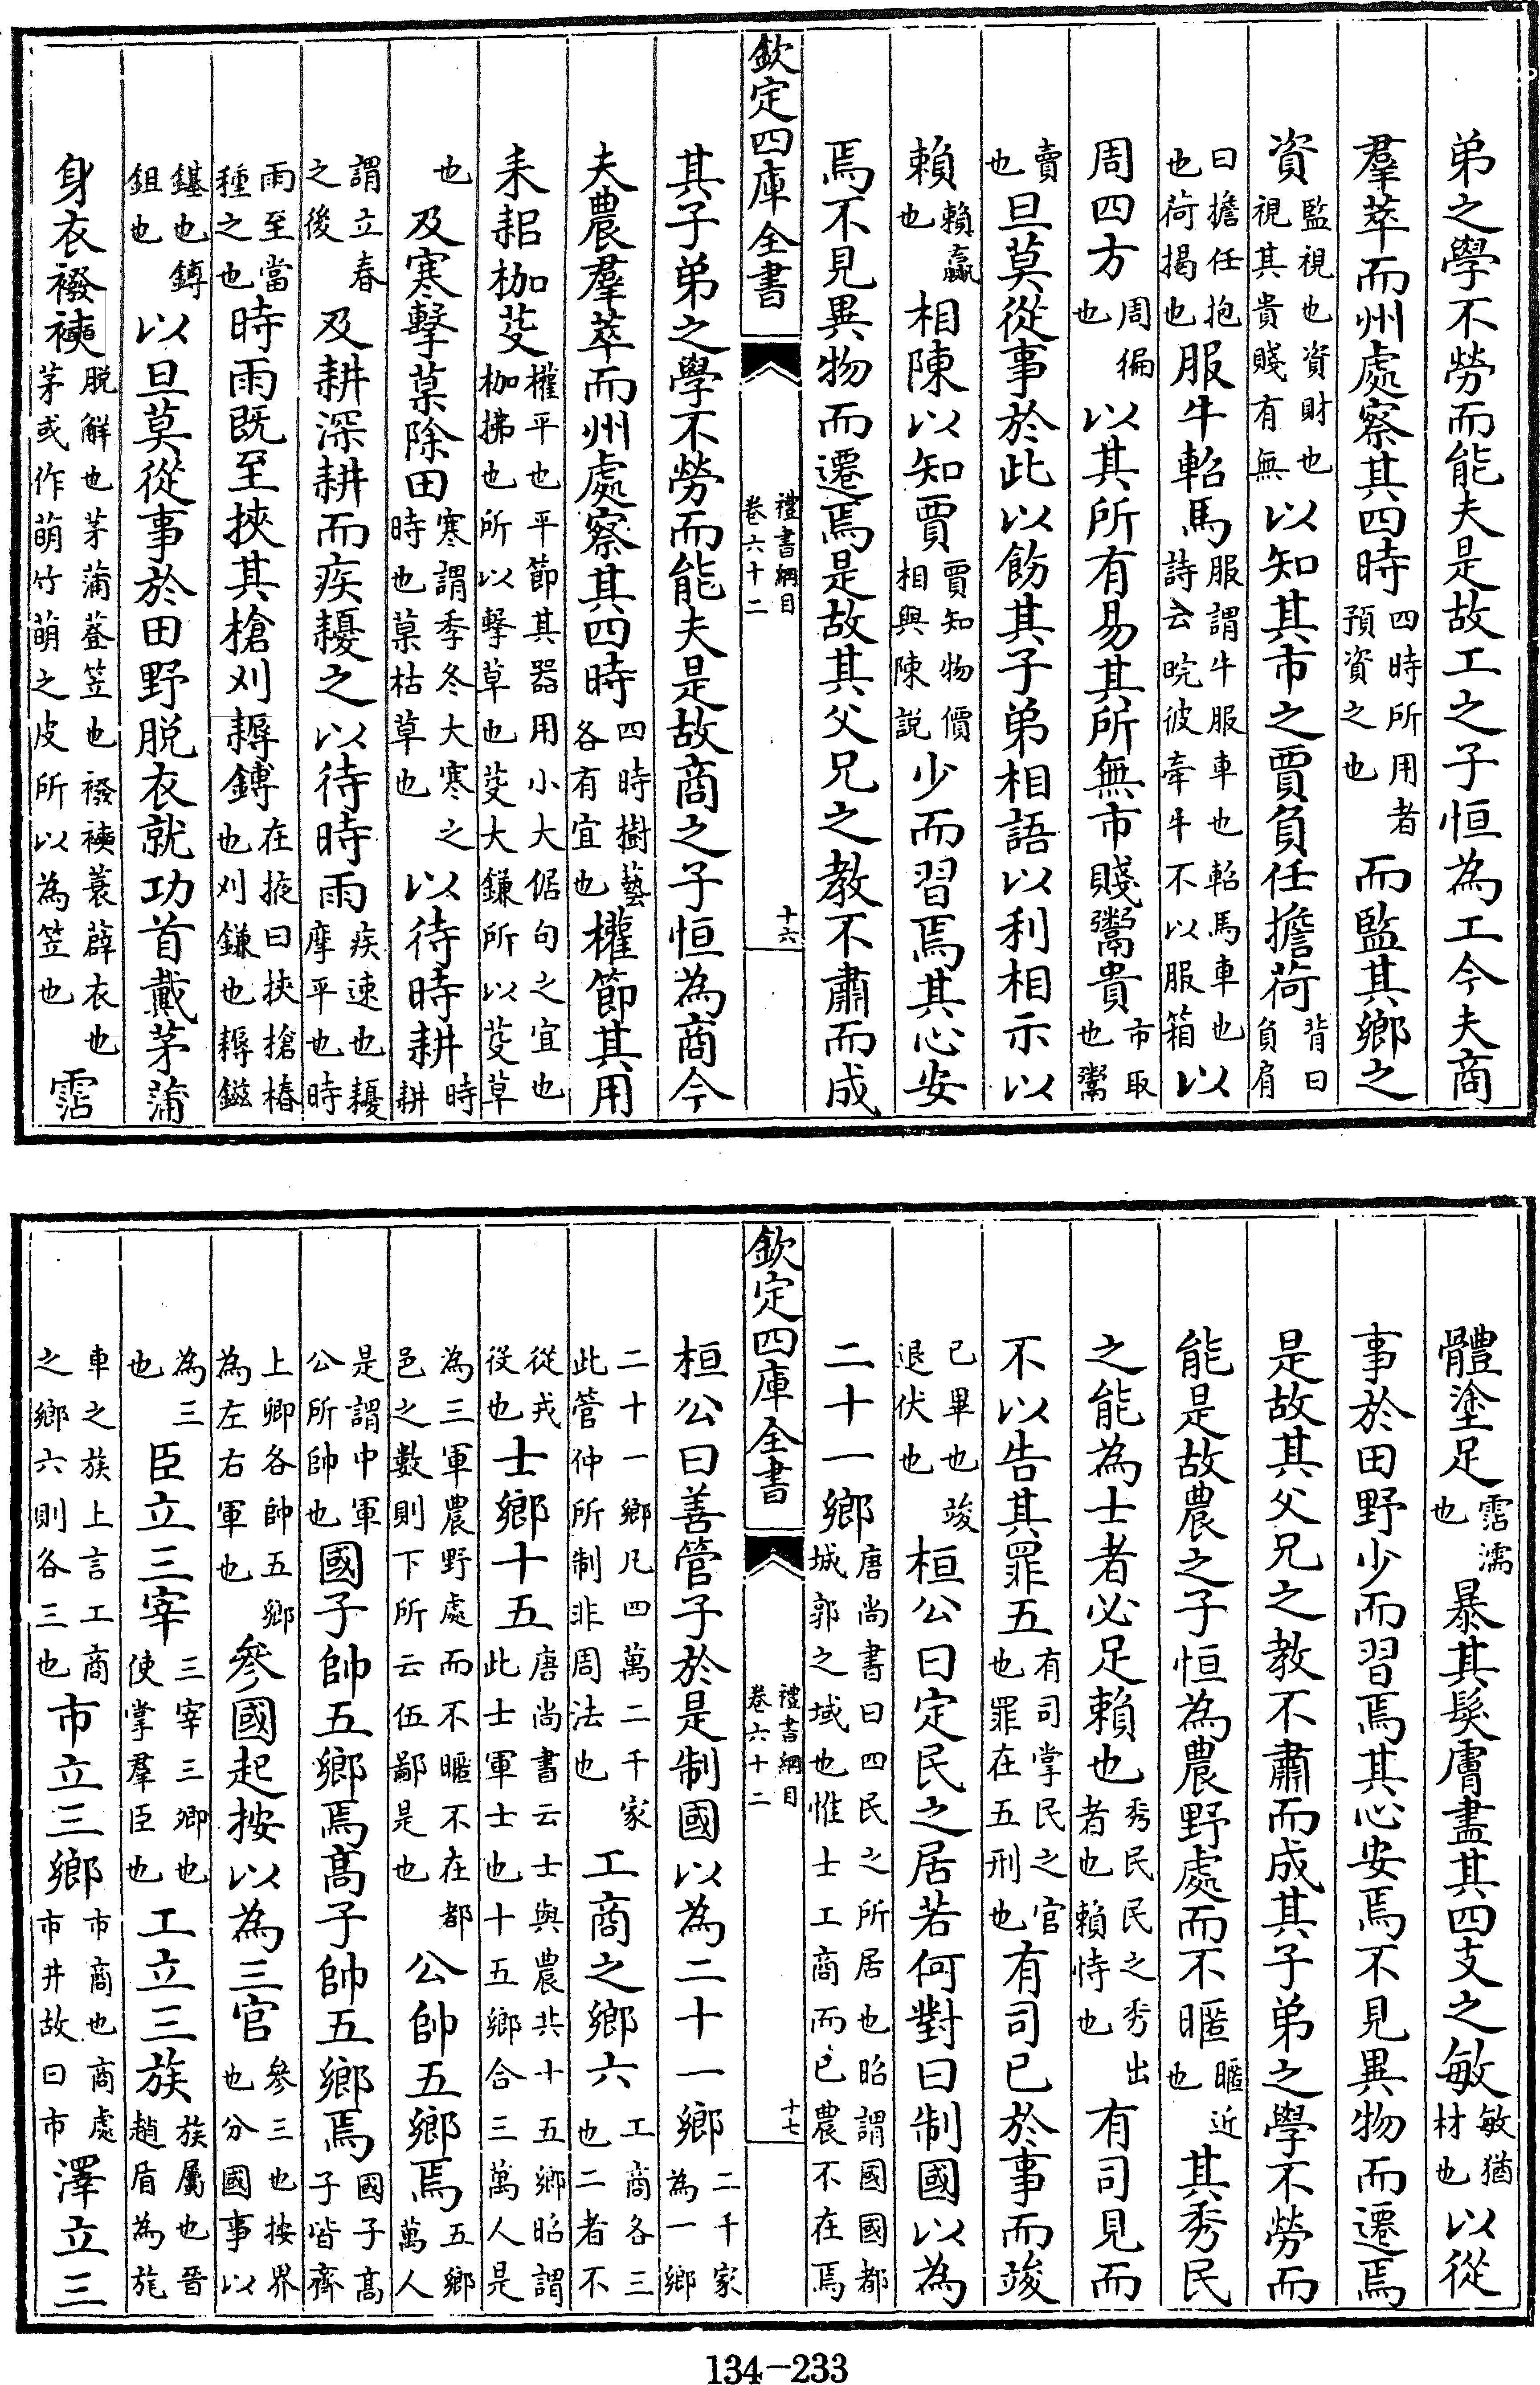 弟之學不勞而能夫是故工之子恒為工今夫商
羣萃而州處察其四時四時所用者預資之也而監其鄉之
資監視也資財也視其貴賤有無以知其市之賈負任擔荷背曰負肩
曰擔任抱也荷揭也服牛軺馬服謂牛服車也軺馬車也詩云睆彼牽牛不以服箱以
周四方周徧也以其所有易其所無市賤鬻貴市取也鬻
賣也旦莫從事於此以飭其子弟相語以利相示以
賴賴贏也相陳以知賈賈知物價相與陳説少而習焉其心安
焉不見異物而遷焉是故其父兄之教不肅而成
欽定四庫全書 禮書綱目卷六十二 十六
其子弟之學不勞而能夫是故商之子恒為商今
夫農羣萃而州處察其四時四時樹藝各有宜也權節其用
耒耜枷芟權平也平節其器用小大倨句之宜也枷拂也所以擊草也芟大鎌所以芟草
也及寒擊菒除田寒謂季冬大寒之時也菒枯草也以待時耕時耕
謂立春之後及耕深耕而疾耰之以待時雨疾速也耰摩平也時
雨至當種之也時雨既至挾其槍刈耨鎛在掖曰挾槍樁也刈鎌也耨鎡
鎡也鎛鉏也以旦莫從事於田野脱衣就功首戴茅蒲
身衣襏襫脱解也茅蒲簦笠也襏襫蓑薜衣也茅或作萌竹萌之皮所以為笠也霑
體塗足霑濡也暴其髮膚盡其四支之敏敏猶材也以從
事於田野少而習焉其心安焉不見異物而遷焉
是故其父兄之教不肅而成其子弟之學不勞而
能是故農之子恒為農野處而不暱暱近也其秀民
之能為士者必足賴也秀民民之秀出者也賴恃也有司見而
不以告其罪五有司掌民之官也罪在五刑也有司已於事而竣
已畢也竣退伏也桓公曰定民之居若何對曰制國以為
二十一鄉唐尚書曰四民之所居也昭謂國國都城郭之域也惟士工商而已農不在焉
欽定四庫全書 禮書綱目卷六十二 十七
桓公曰善管子於是制國以為二十一鄉二千家為一鄉
二十一鄉凡四萬二千家此管仲所制非周法也工商之鄉六工商各三也二者不
從戎役也士鄉十五唐尚書云士與農共十五鄉昭謂此士軍士也十五鄉合三萬人是
為三軍農野處而不暱不在都邑之數則下所云伍鄙是也公帥五鄉焉五鄉萬人
是謂中軍公所帥也國子帥五鄉焉髙子帥五鄉焉國子髙子皆齊
上卿各帥五鄉為左右軍也參國起按以為三官參三也按界也分國事以
為三也臣立三宰三宰三卿也使掌羣臣也工立三族族屬也晋趙盾為旄
車之族上言工商之鄉六則各三也市立三鄉市商也商處市井故曰市澤立三
134-233